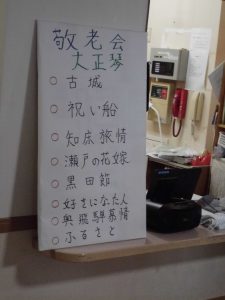 敬老会
大正琴
○ 古城
○ 祝い船
○ 知床旅情
○ 瀬戸の花嫁
○ 黒田節
○ 好きになった人
○ 奥飛騨慕情
○ ふるさと